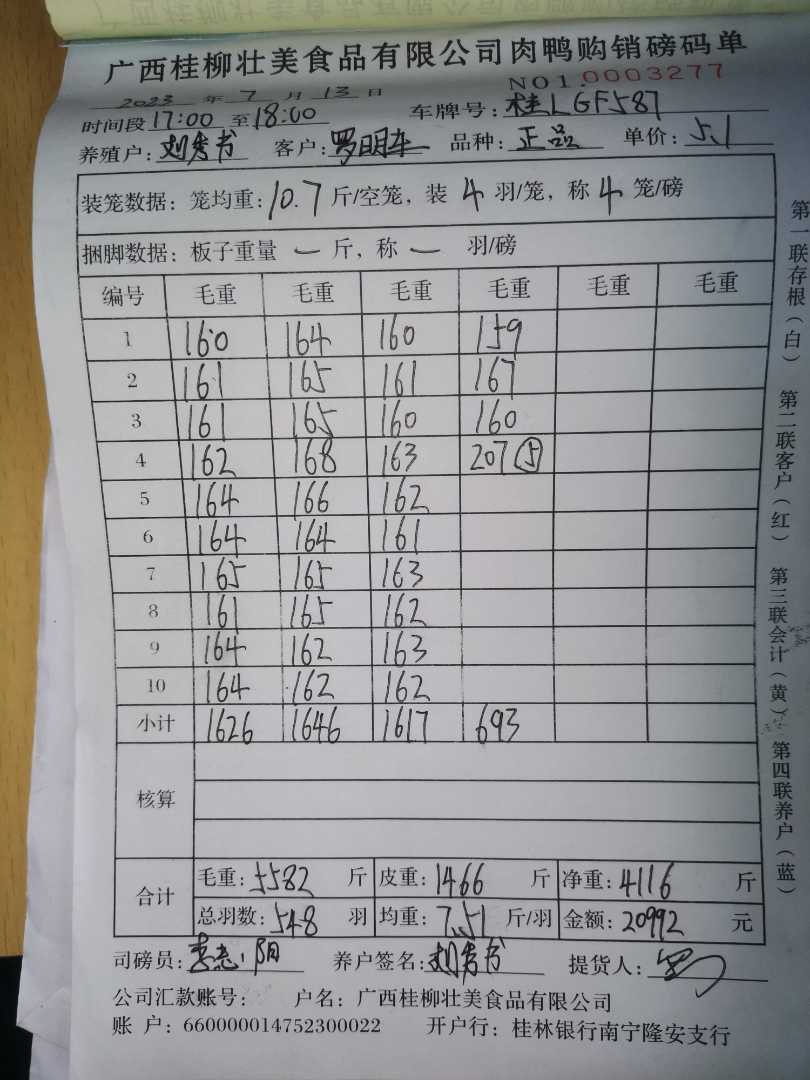 广西桂柳壮美食品有限公司肉鸭购销磅码单
NO1.0003277
2023 年 7 月 13 日
时间段 17:00 至 18:00 车牌号: 桂LGF587
养殖户: 刘秀书 客户: 罗明车 品种: 正品 单价: 5.1
装笼数据: 笼均重: 10.7 斤/空笼, 装 4 羽/笼, 称 4 笼/磅
捆脚数据: 板子重量 一 斤, 称 一 羽/磅
编号 毛重 毛重 毛重 毛重 毛重 毛重
1 160 164 160 159
2 161 165 161 167
3 161 165 160 160
4 162 168 163 207⑤
5 164 166 162
6 164 164 161
7 165 165 163
8 161 165 162
9 164 162 163
10 164 162 162
小计 1626 1646 1617 693
核算
合计
毛重: 5582 斤 皮重: 1466 斤 净重: 4116 斤
总羽数: 548 羽 均重: 7.51 斤/羽 金额: 20992 元
司磅员: 养户签名: 刘秀书 提货人: 罗
公司汇款账号: 户名: 广西桂柳壮美食品有限公司
账 户: 660000014752300022 开户行: 桂林银行南宁隆安支行
第一联存根(白) 第二联客户(红) 第三联会计(黄) 第四联养户(蓝)